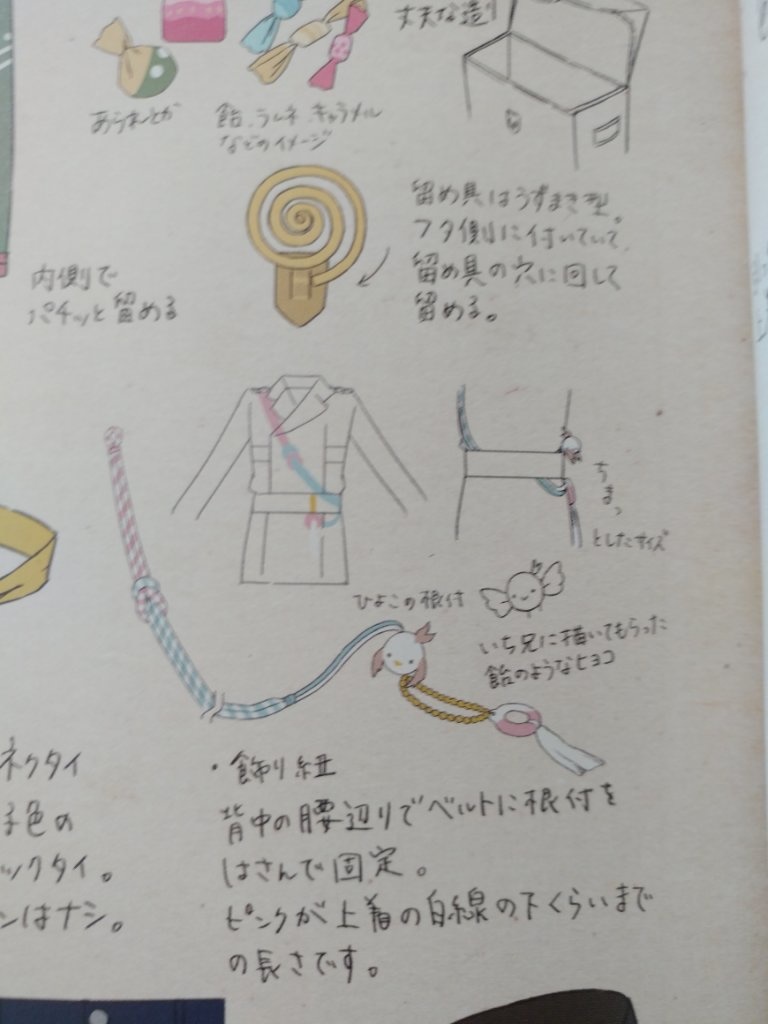 丈夫な造り
あられとか
飴、ラムネ、キャラメル
などのイメージ
内側で
パチッと留める
留め具はうずまき型。
フタ側に付いていて、
留め具の穴に回して
留める。
ちまっ
としたサイズ
ひよこの根付
いち兄に描いてもらった
飴のようなヒヨコ
ネクタイ
子色の
ックタイ。
ンはナシ。
・飾り紐
背中の腰辺りでベルトに根付を
はさんで固定。
ピンクが上着の白線の下くらいまで
の長さです。